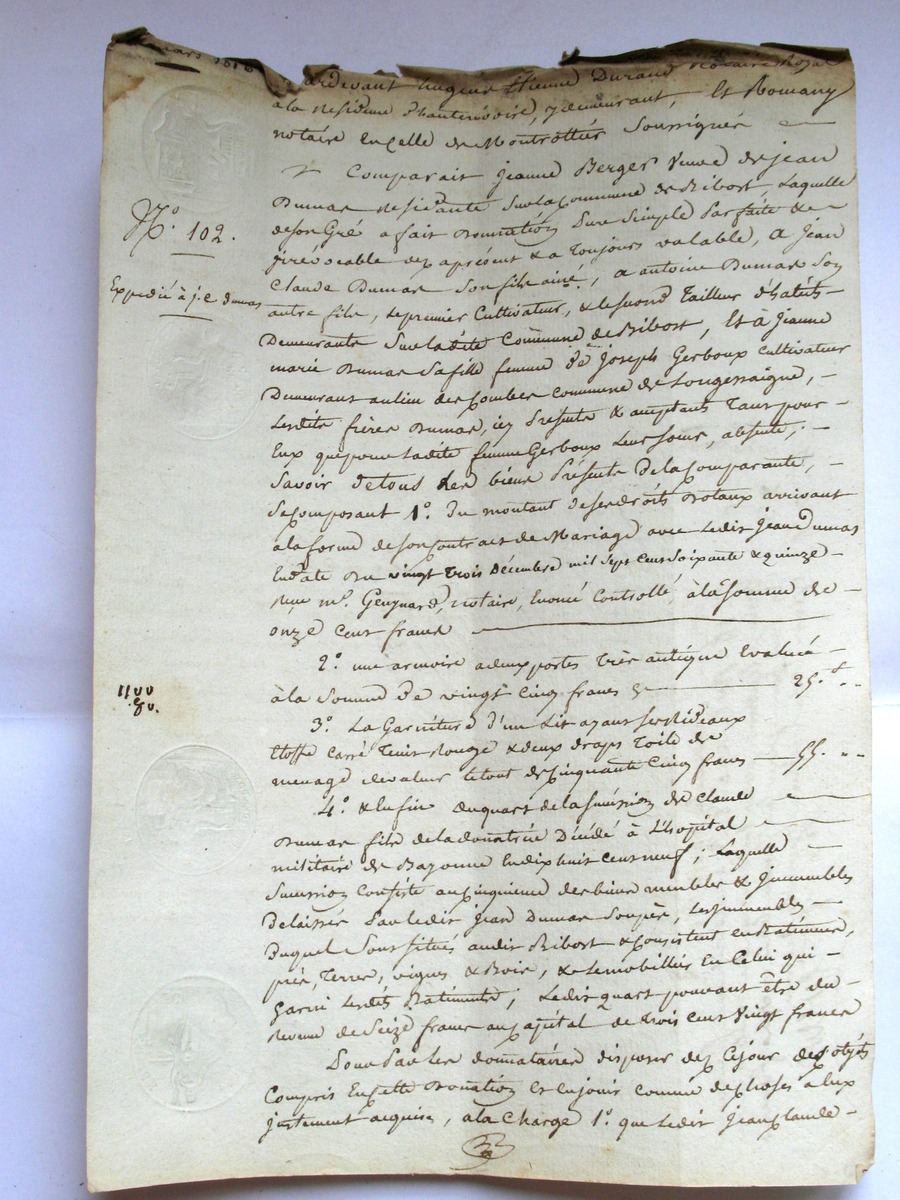 mars 181
Pardevant Eugène Etienne Durand Notaire Royal
a la Residence d'hauterivoire, y demeurant, Et Romany
notaire En Celle de Montrottier Soussignés
Comparait Jeanne Berger Veuve de jean
Dumas Residante Sur la Commune de Ribost, Laquelle
de son Gré a fait Donnation Pure Simple Parfaite &
jrrévocable dez aprésent & a Toujours valable, a Jean
Claude Dumas Son fils ainé, a antoine Dumas Son
autre fils, le premier Cultivateur, & le second Tailleur d'habits
Demeurants Sur la dite Commune de Ribost, Et à Jeanne
marie Dumas Sa fille femme de Joseph Gerboux Cultivateur
Demeurant au lieu des Combes commune de Longessaigne,
Lesdits frères Dumas, icy Présents & aceptants Tant pour
Eux que pour Ladite femme Gerboux Leur Soeur, absente;
Savoir de tous Les biens Présents de la Comparante,
Se composant 1.° Du montant de ses droits dotaux arrivant
a la forme de son Contract de Mariage avec Ledit Jean Dumas
En date du vingt Trois Décembre mil Sept Cent Soixante & quinze
Reçu m.e Genynard, notaire, Enoncé Controllé, à la Somme de
onze Cent francs
2.° une armoire a deux portes Très antique Evaluée
à la Somme de vingt Cinq francs 25.f
3.° La Garniture d'un Lit ayant Ses Rideaux
Etoffe Carré Teint Rouge & deux draps Toile de
menage de valeur le tout de Cinquante Cinq francs 55.
4.° & Enfin du quart de la Succession de Claude
Dumas fils de la donatrice Décédé à L'hopital
militaire de Bayonne En dix huit cent neuf; Laquelle
Succession Consiste au Cinquieme des biens meubles & Jmmeubles
Delaissés Par Ledit Jean Dumas Son père, Les jmmeubles
Duquel Sont Situés audit Ribost & Consistent en Batiments,
prés, Terres, vignes & Bois, & Le mobillier En Celui qui
Garni Lesdits Batiments; Ledit quart pouvant être du
Revenu de Seize francs au Capital de trois Cent Vingt francs
Pour Par Les donnataires disposer dez Cejour des objets
Compris En Cette Donnation Et En jouir comme de choses à Eux
justement acquises, a la Charge 1.° que Ledit Jean Claude
N.° 102.
Expedié à j. C dumas
1100
80.